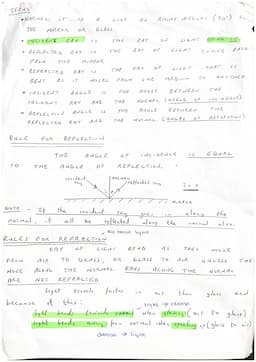 TERMS
• NORMAL IT IS A LINE AT RIGHT ANGLES (90°) TO
THE MIRROR OR GLASS.
• INCIDENT RAY IS THE RAY OF LIGHT
• REFLECTED RAY IS THE RAY OF LIGHT COMING BACK
FROM THE MIRROR
• REFRACTED RAY IS THE RAY OF LIGHT THAT IS
BENT AS IT MOVES FROM ONE MEDIUM TO ANOTHER
• INCIDENT ANGLE IS THE ANGLE BETWEEN THE
INCIDENT RAY AND THE NORMAL (ANGLE OF INCIDENCE)
• REFLECTION ANGLE IS THE ANGLE BETWEEN THE
REFLECTED RAY AND THE NORMAL (ANGLE OF REFLECTION)
RULE FOR REFLECTION
THE ANGLE OF INCIDENCE IS EQUAL
TO THE ANGLE OF REFLECTION.
incident
ray
reflected ray
MIRROR
NOTE - If the incident ray goes in along the
normal, it will be reflected along the normal also.
RULES FOR REFRACTION
RAY OF LIGHT BEND AS THEY MOVE
FROM AIR TO GLASS, OR GLASS TO AIR UNLESS THE
MOVE ALONG THE NORMAL. RAYS ALONG THE NORMAL
ARE NOT REFRACTED
Light travels faster in air than glass and
because of this:
light → dense
light bends towards normal when slowing (air to glass)
light bends away from normal when speeding up (glass to air)
dense → light